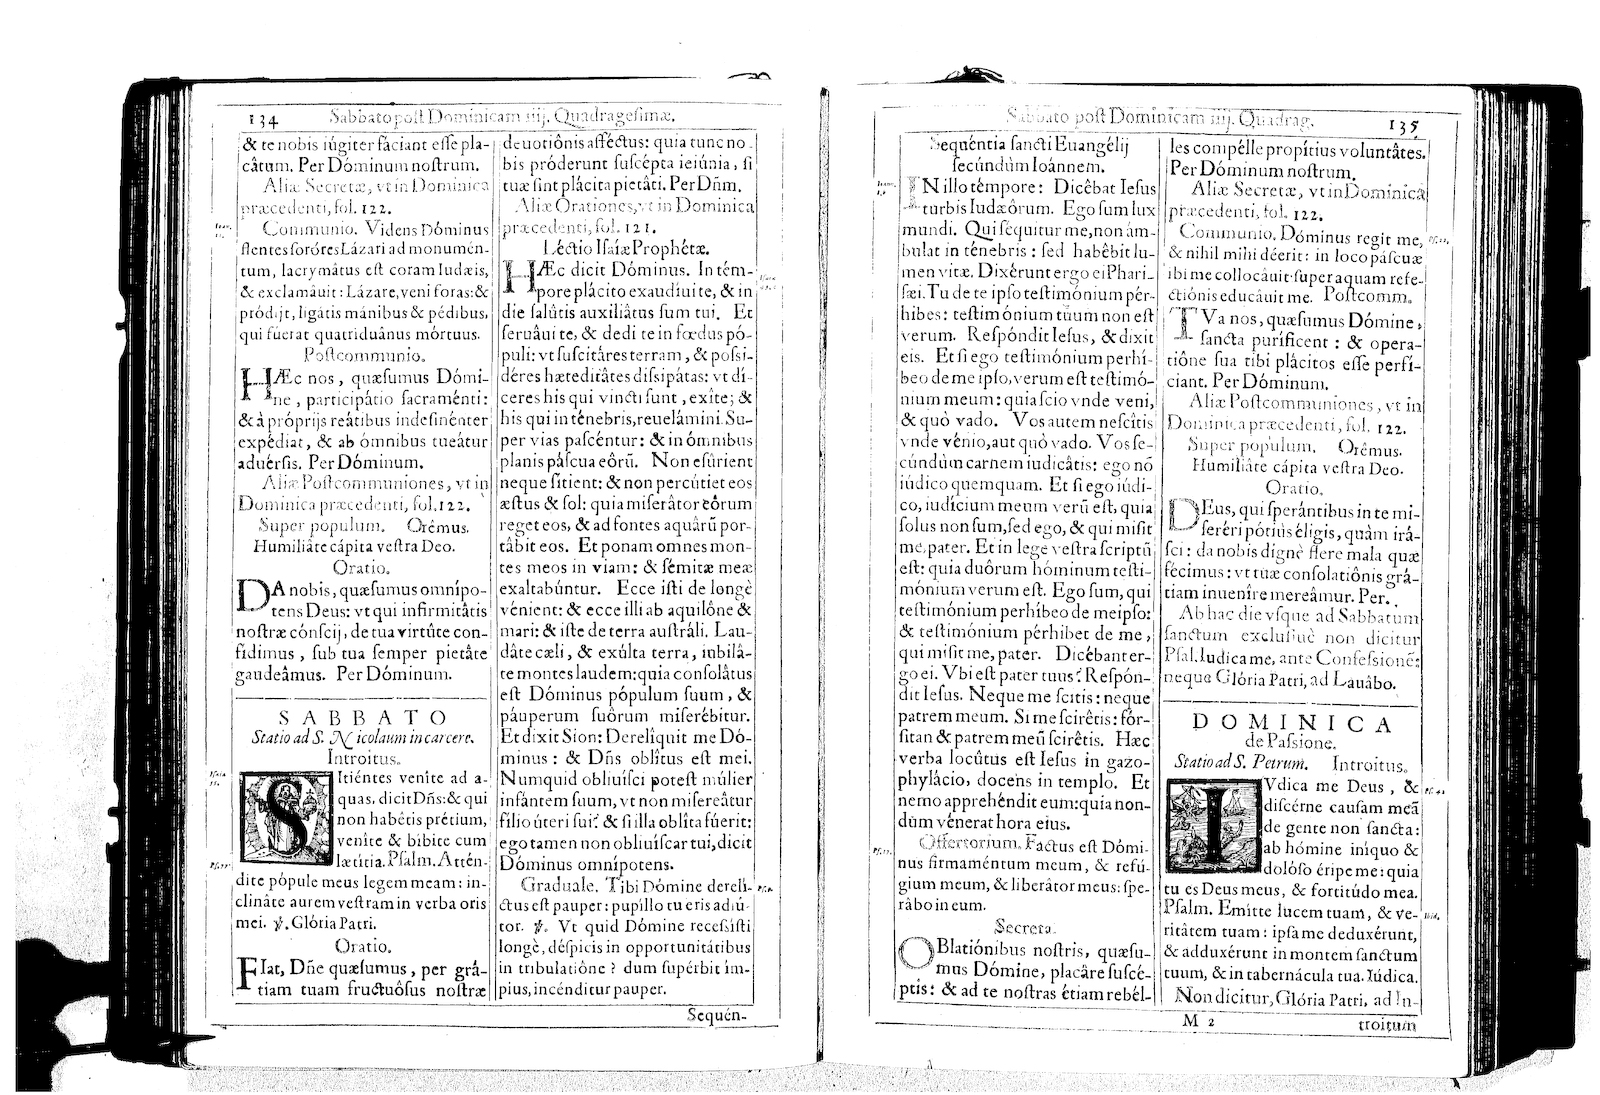 134 Sabbato post Dominicam iiij. Quadragesimæ.
& te nobis iúgiter fáciant esse pla-
câtum. Per Dóminum nostrum.
Aliæ Secretæ, vt in Dominica
præcedenti, fol. 122.
Communio. Videns Dóminus
flentes soróres Lázari ad monumén-
tum, lacrymâtus est coram Iudæis,
& exclamâuit: Lázare, veni foras: &
pródijt, ligátis mánibus & pédibus,
qui fúerat quatriduânus mórtuus.
Postcommunio.
HÆc nos, quæsumus Dómi-
ne, participátio sacraménti:
& à próprijs reátibus indesinénter
expédiat, & ab ómnibus tueátur
aduérsis. Per Dóminum.
Aliæ Postcommuniones, vt in
Dominica præcedenti, fol. 122.
Super populum. Orêmus.
Humiliâte cápita vestra Deo.
Oratio.
DA nobis, quæsumus omnípo-
tens Deus: vt qui infirmitâtis
nostræ cónscij, de tua virtûte con-
fídimus, sub tua semper pietâte
gaudeâmus. Per Dóminum.
SABBATO
Statio ad S. Nicolaum in carcere.
Introitus.
SItiéntes venîte ad a-
quas, dicit Dñs: & qui
non habétis prétium,
venîte & bíbite cum
lætítia. Psalm. Attén-
dite pópule meus legem meam: in-
clinâte aurem vestram in verba oris
mei. ℣. Glória Patri.
Oratio.
FIat, Dñe quæsumus, per grá-
tiam tuam fructuôsus nostræ
deuotiônis afféctus: quia tunc no-
bis próderunt suscépta ieiúnia, si
tuæ sint plácita pietáti. Per Dñm.
Aliæ Orationes, vt in Dominica
præcedenti, fol. 121.
Léctio Isaíæ Prophétæ.
HÆc dicit Dóminus. In tém-
pore plácito exaudíui te, & in
die salútis auxiliâtus sum tui. Et
seruâui te, & dedi te in fœdus pó-
puli: vt suscitâres terram, & possi-
déres hæreditâtes dissipátas: vt dí-
ceres his qui vincti sunt, exîte; &
his qui in ténebris, reuelámini. Su-
per vias pascéntur: & in ómnibus
planis páscua eôrũ. Non esúrient
neque sítient: & non percútiet eos
æstus & sol: quia miserâtor eôrum
reget eos, & ad fontes aquârũ por-
tâbit eos. Et ponam omnes mon-
tes meos in viam: & sémitæ meæ
exaltabúntur. Ecce isti de longè
vénient: & ecce illi ab aquilône &
mari: & iste de terra austráli. Lau-
dâte cæli, & exúlta terra, iubilâ-
te montes laudem: quia consolâtus
est Dóminus pópulum suum, &
páuperum suôrum miserébitur.
Et dixit Sion: Derelîquit me Dó-
minus: & Dñs oblîtus est mei.
Numquid obliuísci potest múlier
infántem suum, vt non misereâtur
fílio úteri sui? & si illa oblîta fúerit:
ego tamen non obliuíscar tui, dicit
Dóminus omnípotens.
Graduale. Tibi Dómine derelí-
ctus est pauper: pupíllo tu eris adiú-
tor. ℣. Vt quid Dómine recessísti
longè, déspicis in opportunitátibus
in tribulatiône? dum supérbit ím-
pius, incénditur pauper.
Sequén-
Sabbato post Dominicam iiij. Quadrag. 135
Sequéntia sancti Euangélij
secúndùm Ioánnem.
IN illo têmpore: Dicêbat Iesus
turbis Iudæôrum. Ego sum lux
mundi. Qui séquitur me, non ám-
bulat in ténebris: sed habêbit lu-
men vitæ. Dixérunt ergo ei Phari-
sæi. Tu de te ipso testimónium pér-
hibes: testimónium tuum non est
verum. Respóndit Iesus, & dixit
eis. Et si ego testimónium perhí-
beo de me ipso, verum est testimó-
nium meum: quia scio vnde veni,
& quò vado. Vos autem nescîtis
vnde vénio, aut quò vado. Vos se-
cúndùm carnem iudicâtis: ego nõ
iúdico quemquam. Et si ego iúdi-
co, iudícium meum verũ est, quia
solus non sum, sed ego, & qui misit
me, pater. Et in lege vestra scriptũ
est: quia duôrum hóminum testi-
mónium verum est. Ego sum, qui
testimónium perhíbeo de meipso:
& testimónium pérhibet de me,
qui misit me, pater. Dicébant er-
go ei. Vbi est pater tuus? Respón-
dit Iesus. Neque me scitis: neque
patrem meum. Si me scirêtis: fór-
sitan & patrem meũ scirêtis. Hæc
verba locûtus est Iesus in gazo-
phylácio, docens in templo. Et
nemo apprehéndit eum: quia non-
dùm vénerat hora eius.
Offertorium. Factus est Dómi-
nus firmaméntum meum, & refú-
gium meum, & liberâtor meus: spe-
râbo in eum.
Secreta.
OBlatiónibus nostris, quæsu-
mus Dómine, placâre suscé-
ptis: & ad te nostras étiam rebél-
les compélle propítius voluntâtes.
Per Dóminum nostrum.
Aliæ Secretæ, vt in Dominica
præcedenti, fol. 122.
Communio. Dóminus regit me,
& nihil mihi déerit: in loco páscuæ
ibi me collocâuit: super aquam refe-
ctiónis educâuit me. Postcomm.
TVa nos, quæsumus Dómine,
sancta puríficent: & opera-
tiône sua tibi plácitos esse perfí-
ciant. Per Dóminum.
Aliæ Postcommuniones, vt in
Dominica præcedenti, fol. 122.
Super populum. Orêmus.
Humiliâte cápita vestra Deo.
Oratio.
DEus, qui sperántibus in te mi-
seréri pótiùs éligis, quàm irá-
sci: da nobis dignè flere mala quæ
fécimus: vt tuæ consolatiônis grá-
tiam inuenîre mereâmur. Per.
Ab hac die vsque ad Sabbatum
sanctum exclusiuè non dicitur
Psal. Iudica me, ante Confessionẽ:
neque Glória Patri, ad Lauâbo.
DOMINICA
de Passione.
Statio ad S. Petrum. Introitus.
IVdica me Deus, &
discérne causam meã
de gente non sancta:
ab hómine iníquo &
dolóso éripe me: quia
tu es Deus meus, & fortitúdo mea.
Psalm. Emítte lucem tuam, & ve-
ritâtem tuam: ipsa me deduxérunt,
& adduxérunt in montem sanctum
tuum, & in tabernácula tua. Iúdica.
Non dicitur, Glória Patri, ad In-
M 2 troitum